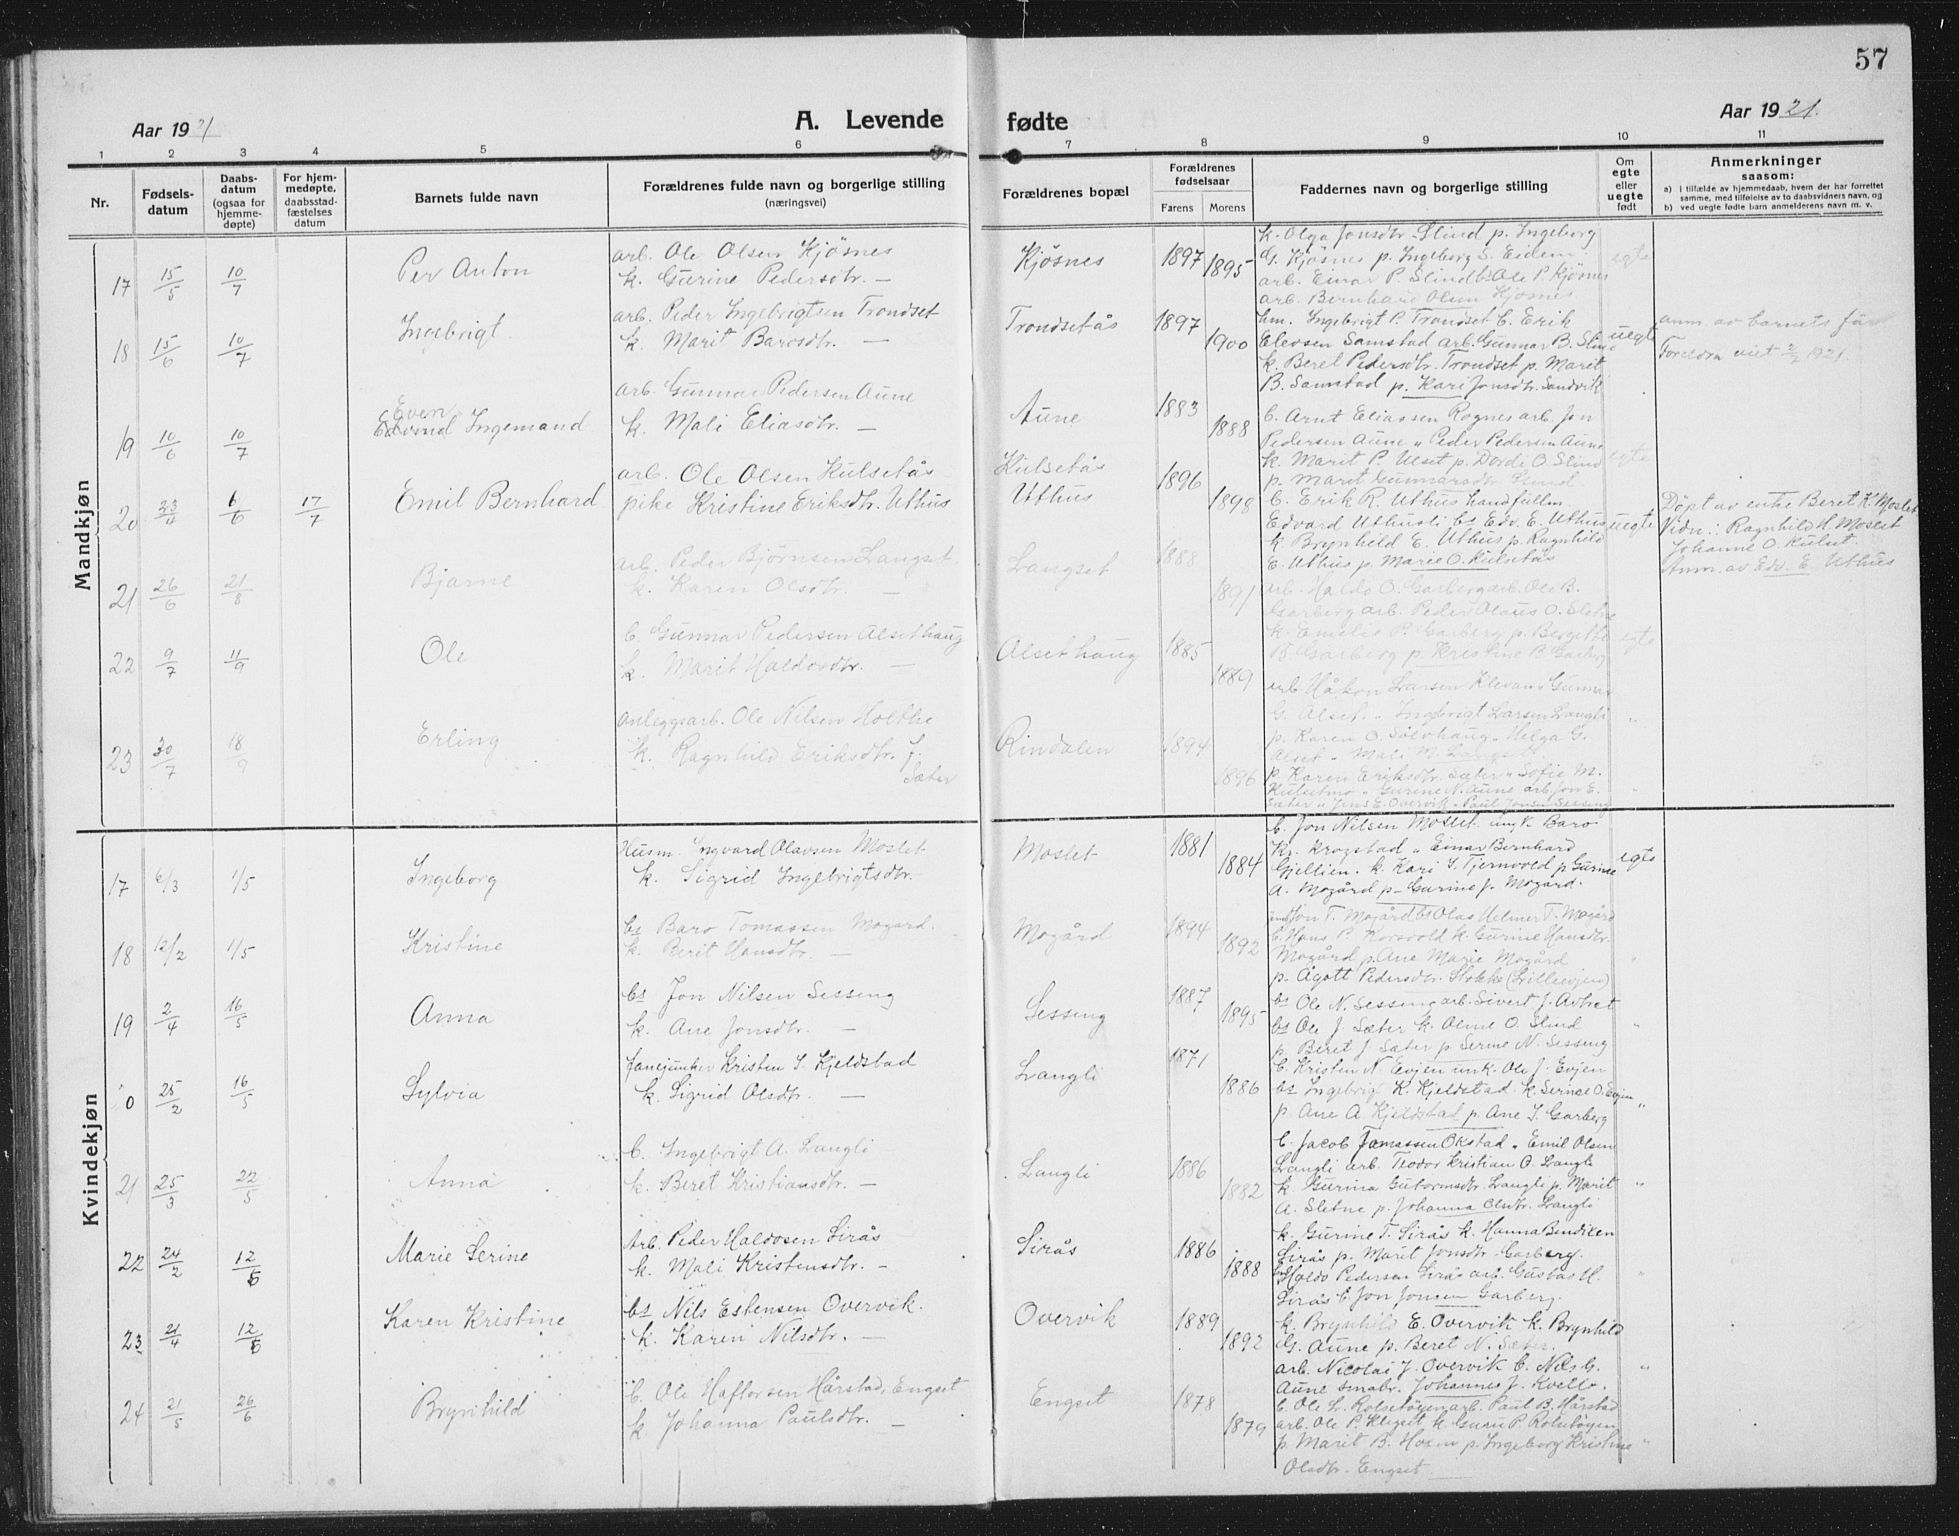 57
Aar 1921
A. Levende fødte
Aar 1921.
1 2 3 4 5 6 7 8 9 10 11
Nr.
Fødsels-
datum
Daabs-
datum
(ogsaa for
hjemme-
døpte)
For hjem-
medøpte,
daabsstad-
fæstelses
datum
Barnets fulde navn
Forældrenes fulde navn og borgerlige stilling
(næringsvei)
Forældrenes bopæl
Forældrenes
fødselsaar
Farens Morens
Faddernes navn og borgerlige stilling
Om
egte
eller
uegte
født
Anmerkninger
saasom:
a) i tilfælde av hjemmedaab, hvem der har forrettet
samme, med tilføielse av to daabsvidners navn, og
b) ved uegte fødte barn anmelderens navn m. v.
Mandkjøn
17 15/5 10/7 Per Anton
arb. Ole Olsen Kjøsnes
k. Gurine Pedersdtr. —
Kjøsnes 1897 1895
k. Olga Jonsdtr. Slind p. Ingeborg
G. Kjøsnes p. Ingeborg S. Eidem
arb. Einar P. Slind bs Ole P. Kjøsnes
arb. Bernhard Olsen Kjøsnes
egte
18 15/6 10/7 Ingebrigt
arb. Peder Ingebrigtsen Trondset
k. Marit Barosdtr. —
Trondsetås 1897 1900
hm. Ingebrigt P. Trondset b. Erik
Elevsen Samstad arb. Gunnar B. Slind
k. Beret Pedersdtr. Trondset p. Marit
B. Samstad p. Kari Jonsdtr. Sandvik
uegte
anm. av barnets far
Foreldra viet 2/7 1921.
19 10/6 10/7 Even
Edvind Ingemand
arb. Gunnar Pedersen Aune
k. Mali Eliasdtr. —
Aune 1883 1888
b. Arnt Eliassen Rognes arb. Jon
Pedersen Aune " Peder Pedersen Aune
k. Marit P. Ulset p. Dordi O. Slind
p. Marit Gunnarsdtr. Slind
egte
20 23/4 6/6 17/7 Emil Bernhard
arb. Ole Olsen Kulsetås
pike Kristine Eriksdtr. Uthus
Kulsetås
Uthus 1896 1898
b. Erik R. Uthus
Edvard Uthusli bs Edv. E. Uthus
k Brynhild E. Uthus p. Ragnhild
E. Uthus p. Marie O. Kulsetås
uegte
Døpt av enke Beret K. Moslet
Vidn.: Ragnhild H. Moslet
Johanne O. Kulset
Anm. av Edv. E. Uthus
21 26/6 21/8 Bjarne
arb. Peder Bjørnsen Langset.
k. Karen Olsdtr. —
Langset 1888 1891
arb. Haldo O. Garberg arb. Ole B.
Garberg arb. Peder Olaus O. Sletne
k. Emelie P. Garberg p. Bergitte
B. Garberg p. Kristine B. Garberg
egte
22 9/7 11/9 Ole
b. Gunnar Pedersen Alsethaug
k. Marit Haldosdtr. —
Alsethaug 1885 1889
arb. Håkon Larsen Klevan " Gunnar
G. Alset. " Ingebrigt Larsen Langli
p. Karen O. Sølvhaug " Helga G.
Alset " Mali M. Langset
"
23 30/7 18/9 Erling
anleggsarb. Ole Nilsen Holthe
k. Ragnhild Eriksdtr. f.
Sæter
Rindalen 1894 1896
p. Karen Eriksdtr. Sæter " Sofie M.
Kulsetmo " Gurine N. Aune arb. Jon E.
Sæter " Jens E. Overvik " Paul Jonsen Sessing
"
Kvindekjøn
17 6/3 1/5 Ingeborg
Husm. Ingvard Olavsen Moslet
k. Sigrid Ingebrigtsdtr.
Moslet 1881 1884
b. Jon Nilsen Moslet. ungk. Baro
Kr. Krogstad " Einar Bernhard
Gjellien. k. Kari S. Tjernvold p Gurine
A. Mogård p- Gurine J. Mogård.
egte
18 12/2 1/5 Kristine
bs Baro Tomassen Mogard.
k. Berit Hansdtr. —
Mogård 1894 1892
Jon T. Mogård bs Olav Helmer T. Mogård
b. Hans P. Korsvold k. Gurine Hansdtr.
Mogård p. Ane Marie Mogård
p. Ågott Pedersdtr. Stokke (Lilleevjen)
"
19 2/4 16/5 Anna
bs Jon Nilsen Sessing
k. Ane Jonsdtr. —
Sessing 1887 1895
bs Ole N. Sessing arb. Sivert J. Avtret
bs Ole J. Sæter k. Oline O. Slind
p. Beret J. Sæter p Serine N. Sessing
"
20 25/2 16/5 Sylvia
fanejunker Kristen S. Kjeldstad
k. Sigrid Olsdtr. —
Langli 1871 1886
b. Kristen N. Evjen unk. Ole J. Evjen
bs Ingebrigt K. Kjeldstad. k. Serine O. Evjen
p. Ane A. Kjeldstad p. Ane S. Garberg
"
21 25/3 22/5 Anna
b. Ingebrigt A. Langli —
k. Beret Kristiansdtr. —
Langli 1886 1882
b. Jacob Tomassen Okstad " Emil Olsen
Langli arb. Teodor Kristian O. Langli
k. Gurina Gutormsdtr. Langli p. Marit
A. Sletne p. Johanna Olsdtr. Langli
"
22 24/2 12/6 Marie Serine
Arb. Peder Haldosen Sirås
k. Mali Kristensdtr. —
Sirås 1886 1888
k. Gurine T. Sirås k. Hanna Bendiksen
Sirås p. Marit Jonsdtr. Garberg.
Haldo Pedersen Sirås arb. Gustav H.
Sirås b. Jon Jonsen Garberg.
"
23 21/4 12/6 Karen Kristine
bs Nils Estensen Overvik.
k. Karen Nilsdtr. —
Overvik 1889 1892
k. Brynhild E. Overvik k. Brynhild
G. Aune p. Beret N. Sæter.
arb. Nicolai J. Overvik b. Nils G.
Aune smabr. Johannes J. Kvello.
"
24 21/5 26/6 Brynhild
b. Ole Haftorsen Hårstad, Engset
k. Johanna Paulsdtr. —
Engset 1878 1879
b. Ole L. Rolsetøyen arb. Paul B. Hårstad
arb. Ole P. Klegset k. Guru P. Rolsetøyen
p. Marit B. Moen p. Ingeborg Kristine
Olsdtr. Engset
"